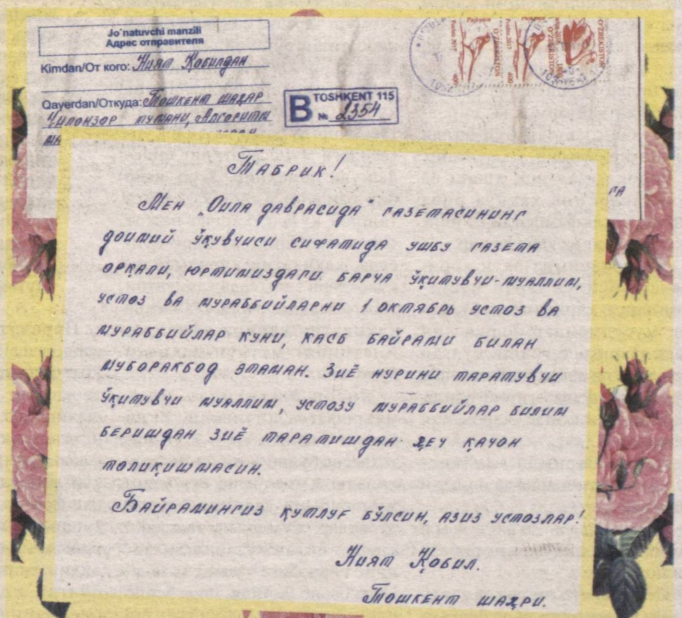 Jo`natuvchi manzili
Адрес отправителя
Kimdan/От кого: Ният Қобилдан
Qayerdan/Откуда: Тошкент шаҳар
Чилонзор тумани,
B TOSHKENT 115
№ 2354
Табрик!
Мен „Оила даврасида“ газетасининг
доимий ўқувчиси сифатида ушбу газета
орқали, юртимиздаги барча ўқитувчи-муаллим,
устоз ва мураббийларни 1 октябрь устоз ва
мураббийлар куни, касб байрами билан
муборакбод этаман. Зиё нурини таратувчи
ўқитувчи муаллим, устозу мураббийлар билим
беришдан зиё таратишдан ҳеч қачон
толиқишмасин.
Байрамингиз қутлуғ бўлсин, азиз устозлар!
Ният Қобил.
Тошкент шаҳри.